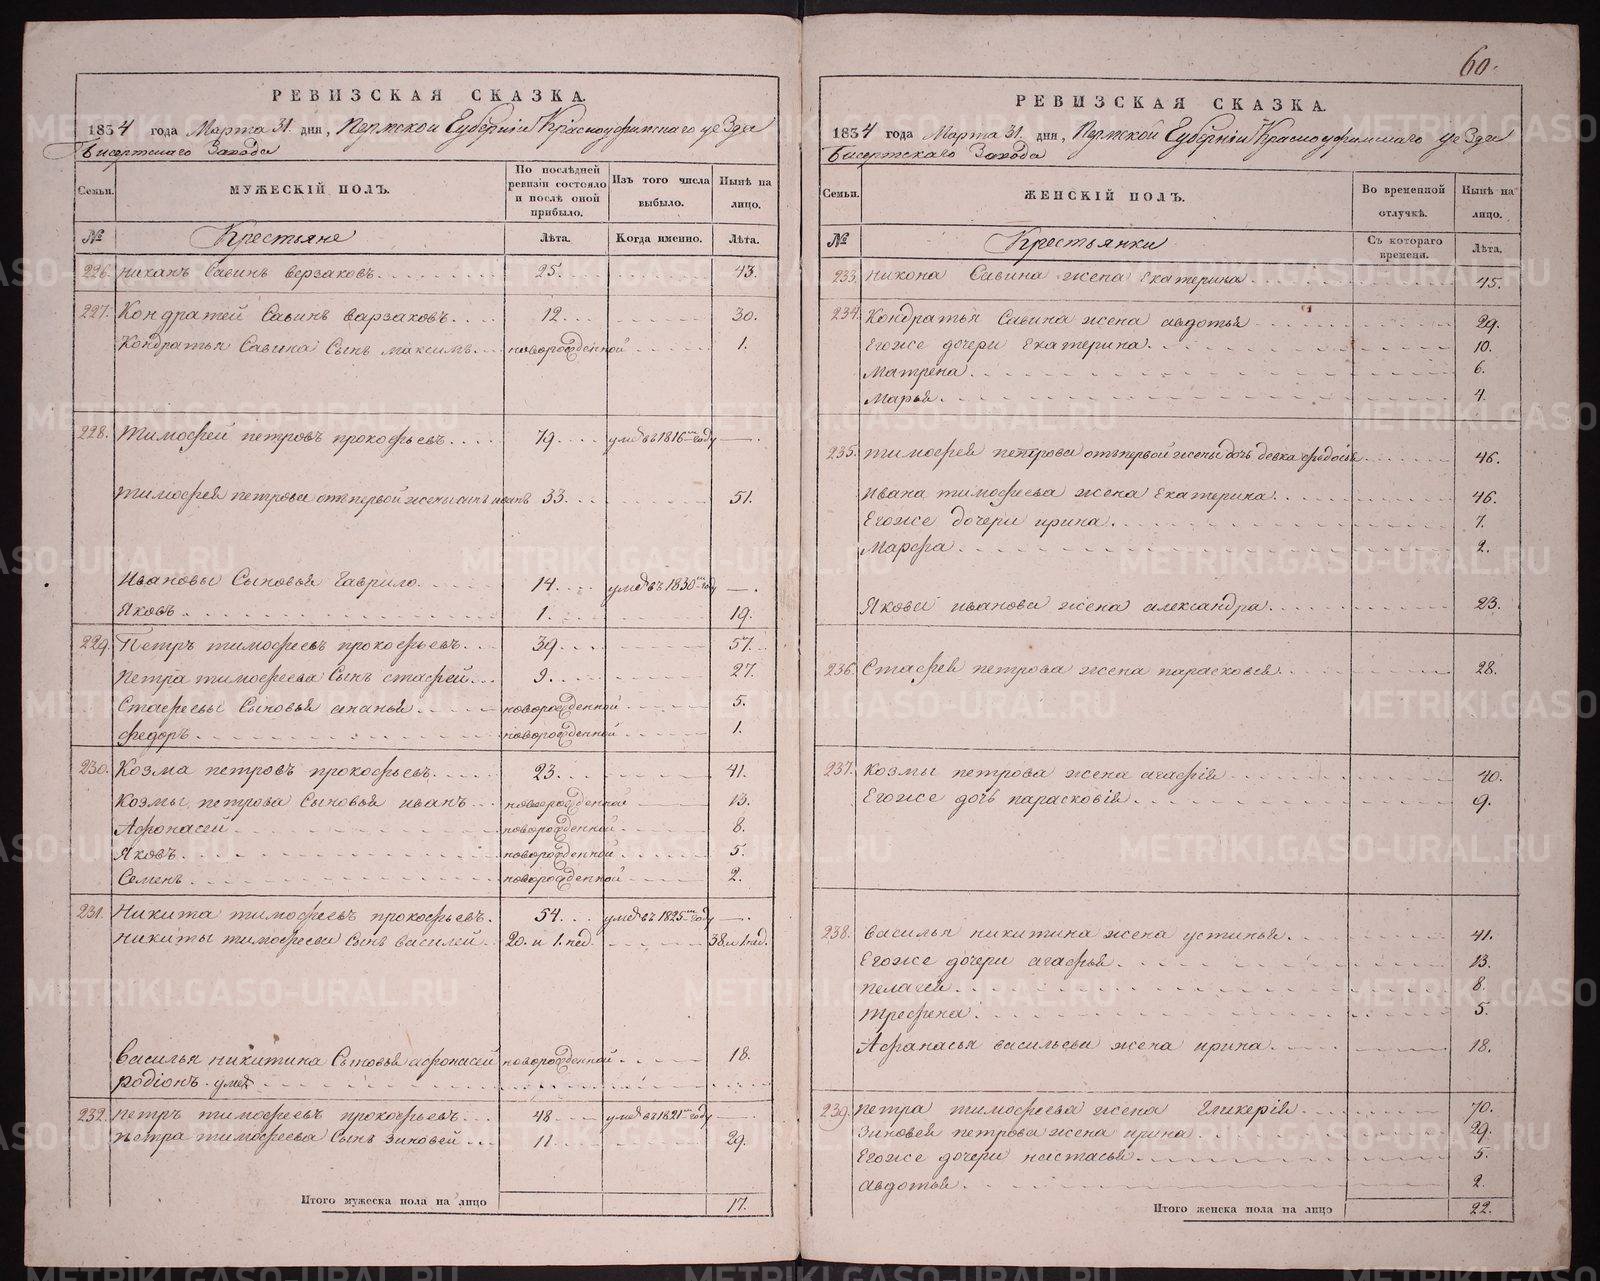 РЕВИЗСКАЯ СКАЗКА.
1834 года Марта 31. дня, Пермской Губерніи Красноуфимскаго уезда
Бисертскаго Завода
Семьи. МУЖЕСКІЙ ПОЛЪ. По последней ревизіи состояло и после оной прибыло. Изъ того числа выбыло. Ныне на лицо.
№ Крестьяне Лѣта. Когда именно. Лѣта.
226. никанъ Савинъ Верзаковъ 25. 43.
227. Кондратей Савинъ Варзаковъ 12. 30.
Кондратья Савина Сынъ максимъ новорожденной 1.
228. Тимофей петровъ прокофьевъ 79. умеръ 1816го году
тимофея петрова отъ первой жены сынъ иванъ 33. 51.
Ивановы Сыновья Гаврило 14. умеръ въ 1830мъ году
Яковъ 1. 19.
229. Петръ тимофеевъ прокофьевъ 39. 57.
Петра тимофеева Сынъ стафей 9. 27.
Стафеевы Сыновья ананья новорожденной 5.
федоръ новорожденной 1.
230. Козма петровъ прокофьевъ 23. 41.
Козмы петрова Сыновья иванъ новорожденной 13.
Афонасей новорожденной 8.
Яковъ новорожденной 5.
Семенъ новорожденной 2.
231. Никита тимофеевъ прокофьевъ 54. умеръ въ 1825мъ году
никиты тимофеева Сынъ василей 20. и 1. нед. 38 и 1 нед.
василья никитина Сыновья афонасей новорожденной 18.
родіонъ умеръ
232. петръ тимофеевъ прокофьевъ 48. умеръ въ 1821мъ году
петра тимофеева Сынъ Зиновей 11. 29.
Итого мужеска пола на лицо 17.
60.
РЕВИЗСКАЯ СКАЗКА.
1834 года Марта 31. дня, Пермской Губерніи Красноуфимскаго уезда
Бисертскаго Завода
Семьи. ЖЕНСКІЙ ПОЛЪ. Во временной отлучкѣ. Ныне на лицо.
№ Крестьянки Съ котораго времени. Лѣта.
233. никона Савина жена Екатерина 45.
234. Кондратья Савина жена авдотья 29.
Егоже дочери Екатерина 10.
Матрена 6.
Марья 4.
235. тимофея петрова отъ первой жены дочь девка фядосья 46.
Ивана тимофеева жена Екатерина 46.
Егоже дочери ирина 7.
Марфа 2.
Якова иванова жена александра 23.
236. Стафея петрова жена парасковея 28.
237. Козмы петрова жена агафія 40.
Егоже дочь парасковія 9.
238. василья никитина жена устинья 41.
Егоже дочери агафья 13.
пелагея 8.
трефена 5.
Афанасья васильева жена ирина 18.
239. петра тимофеева жена Гликерія 70.
Зиновея петрова жена ирина 29.
Егоже дочери настасья 5.
авдотья 2.
Итого женска пола на лицо 22.
METRIKI.GASO-URAL.RU